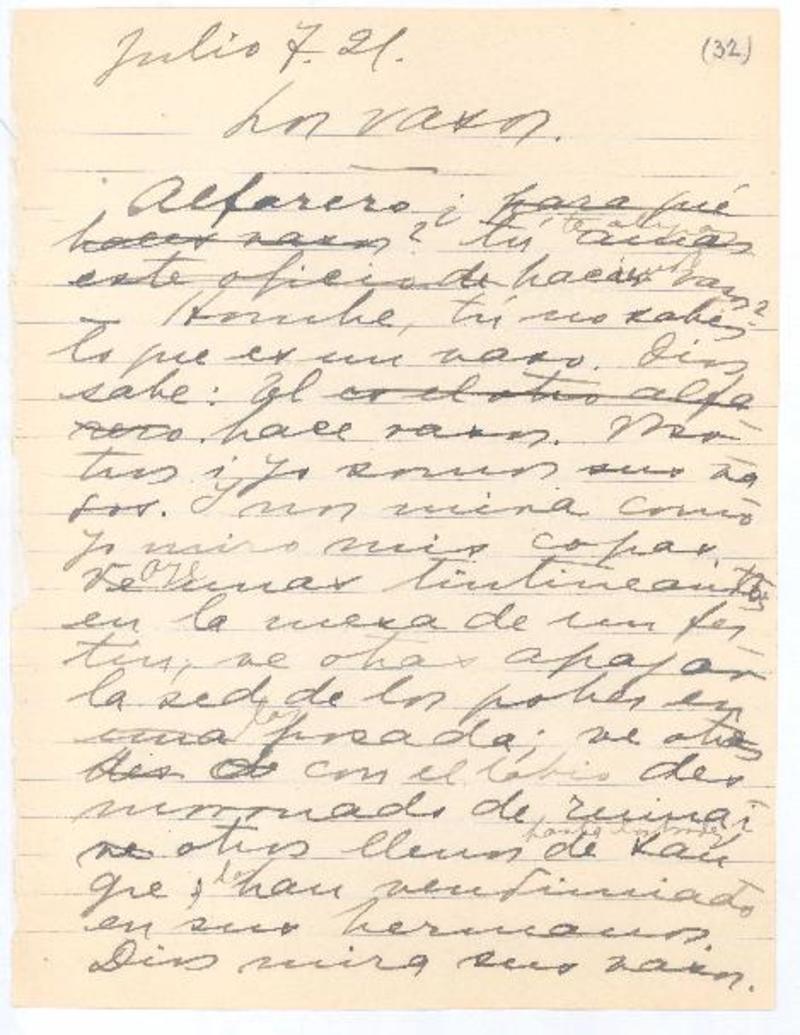 Julio 7. 21. (32)
Los vasos.
Alfarero ¿para qué
haces vasos? tú amas
este oficio de hacer vasos?
– Hombre, tú no sabes
lo que es un vaso. Dios
sabe: El es el otro alfa
rero. hace vasos. Noso
tros i yo somos sus va
sos. I nos mira como
yo miro mis copas.
Ve unas tintineantes
en la mesa de un fes
tín; ve otras apagar
la sed de los pobres en
una posada; ve otras
con el labio des
moronado de ruina i
ve otros llenos de san
gre, han vendimiado
en sus hermanos.
Dios mira sus vasos.